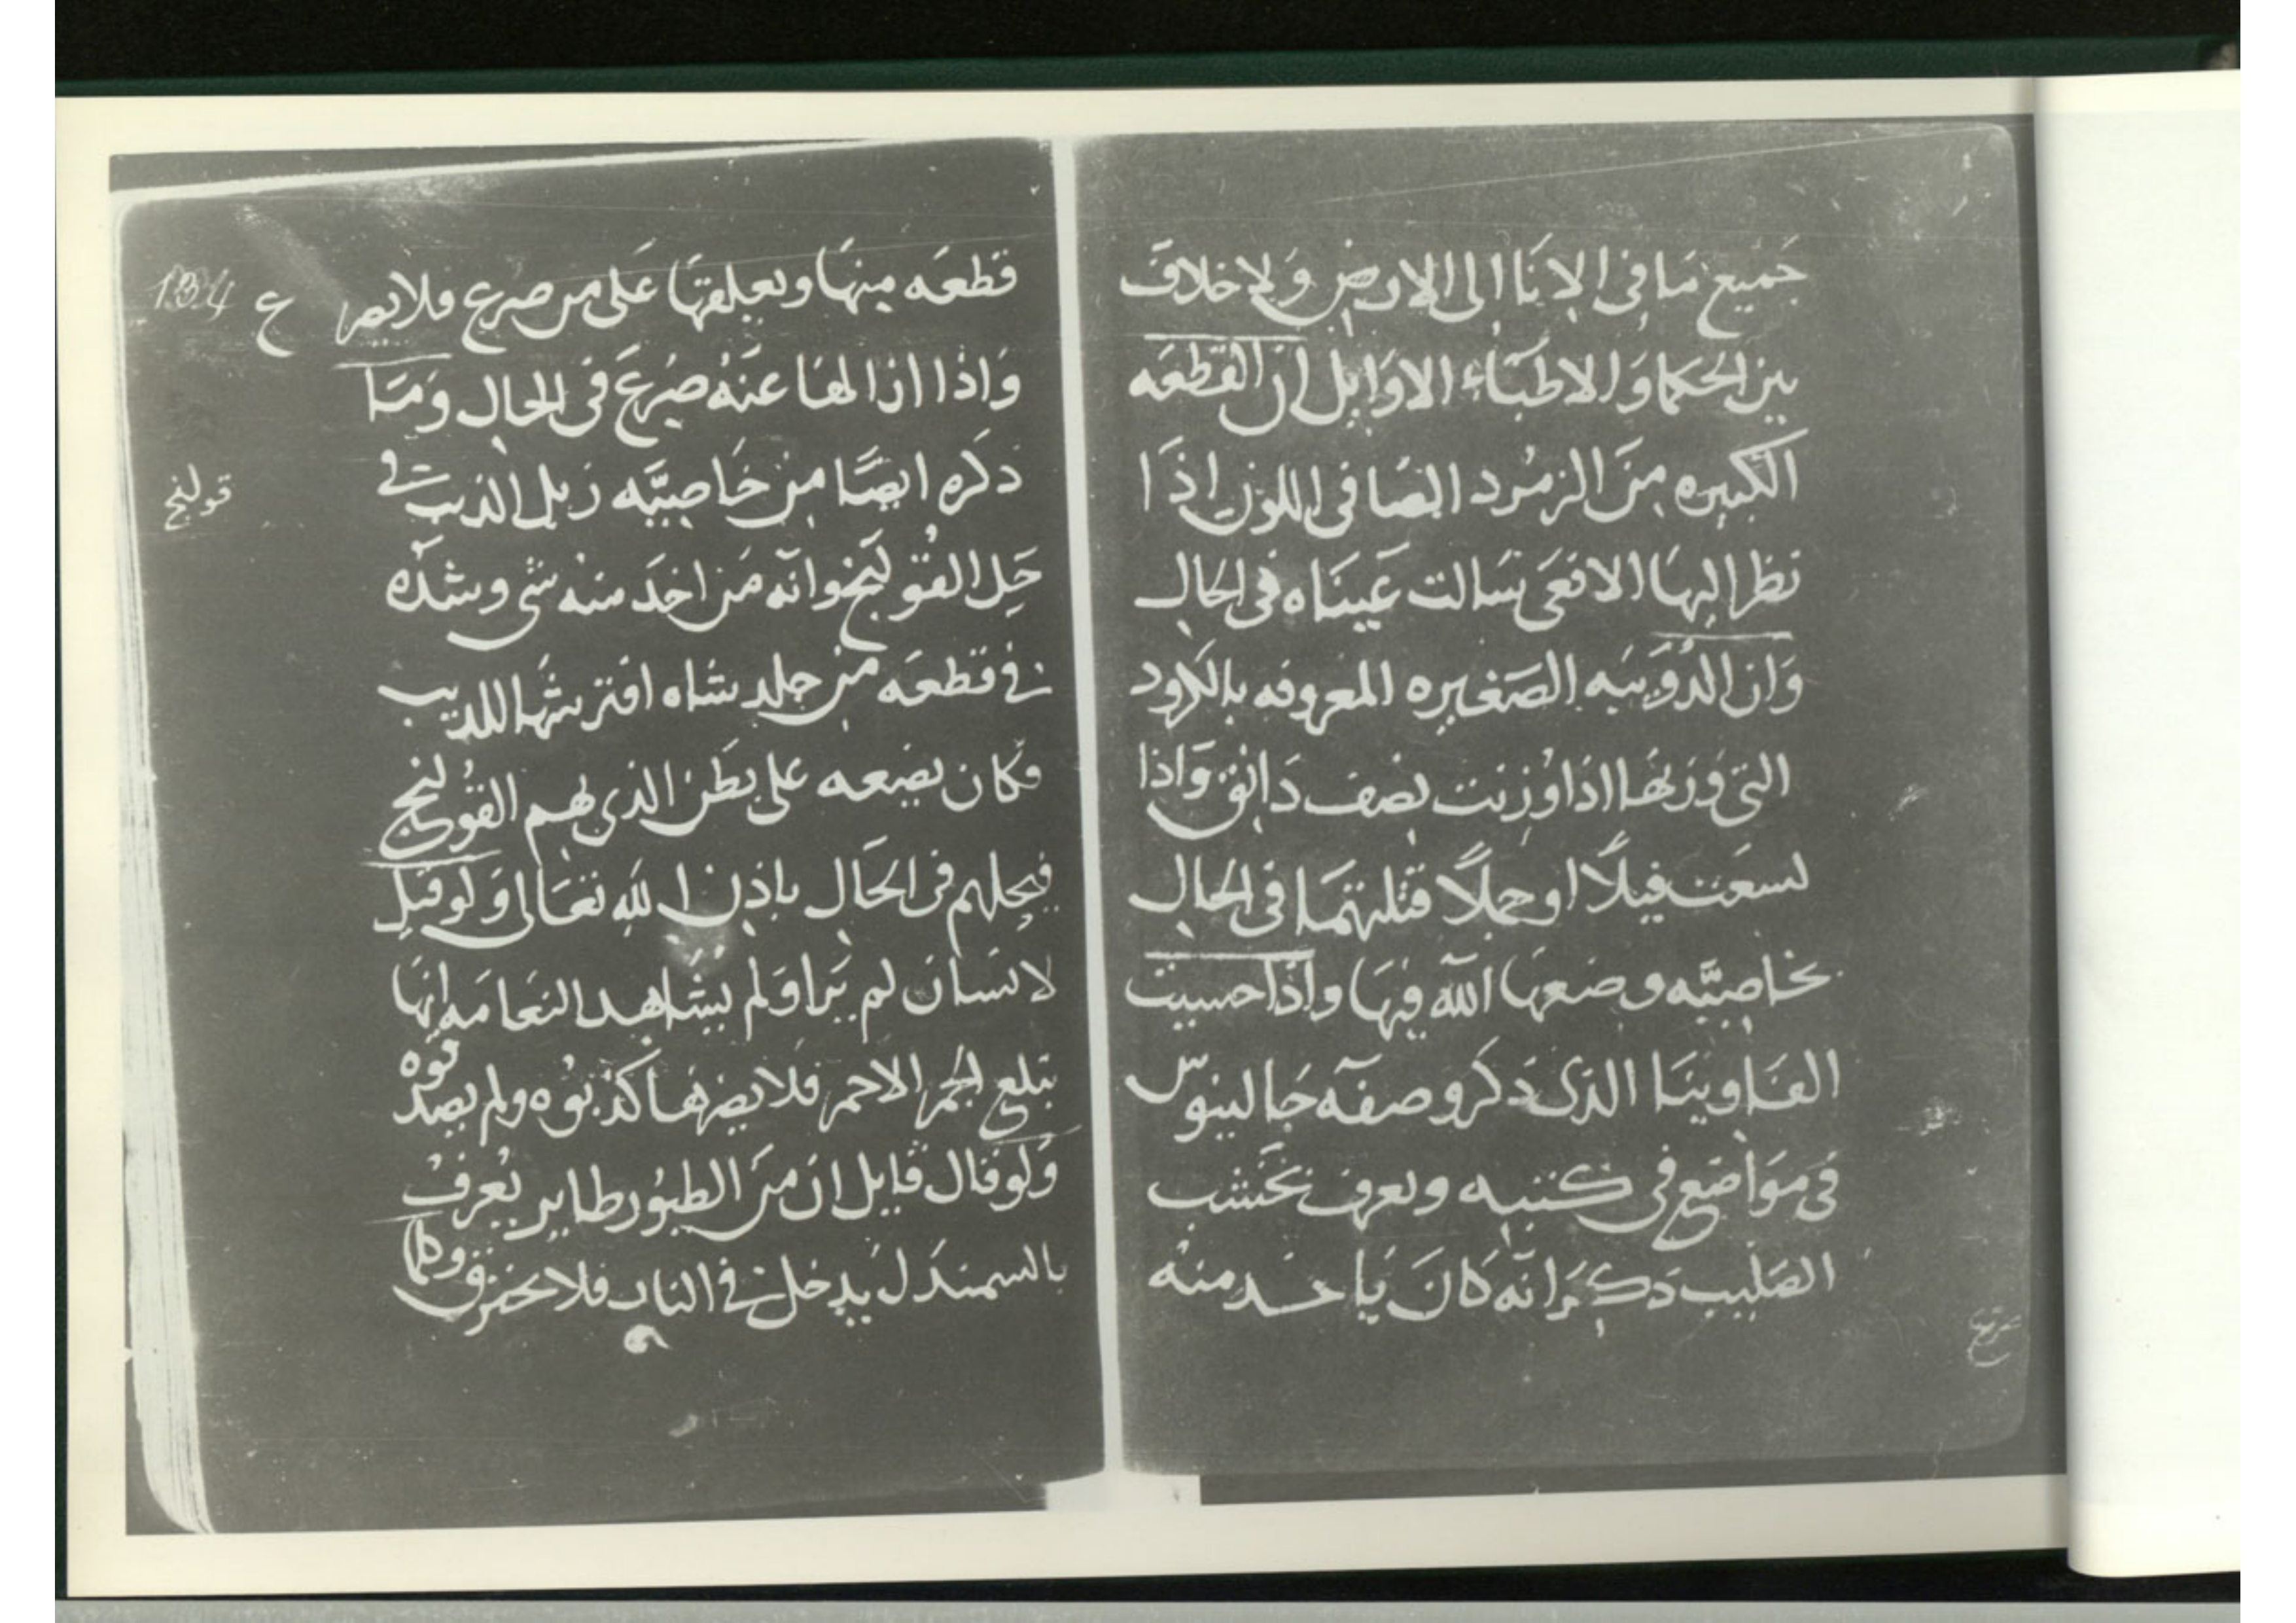 جَميع مَا فى الانَا الى الارض وَلاخلافَ
بين الحكما وَالاطبَّاء الاوَايل ان القطعَه
الكبيره مِنَ الزمُرد الصَافى اللون اذَا
نظر اليهَا الافعَى سَالت عَينَاه فى الحال
وَان الدُوَيبَه الصَغيره المعروفه بالكرود
التى وَزنهَا اذا وُزنت نصف دَانق وَاذا
لسعَت فيلًا او جملًا قتلتهمَا فى الحال
بخاصيَّه وضعهَا اللّه فيهَا واذَا حسبت
الفَاوينَا الذى ذَكر وصفَه جَالينوس
فى مَوَاضع فى كتبه وتعرف بخَشب
الصَليب ذكرَ انّه كانَ يَاخد منه
صرع
قطعَه مِنهَا ويعلقهَا عَلى من صرع فلا يصرع
134
وَاذا ازالهَا عنَهُ صُرعَ فى الحال وَمَا
ذكره ايضًا مِن خَاصيَّه زبل الذيب فى
قولنج
حَل القُولنج وانّه مَن اخَد منه شى وشدّه
فى قطعَه من جلد شاه افترسَهَا الذيب
فكان يضَعه على بَطن الذى بهم القُولنج
فيحلهم فى الحَال باذن اللهِ تعَالى وَلو قيل
لانسَان لم يَرا وَلم يشَاهد النعَامَه انهَا
تبلع الجمر الاحمر فلا يضرهَا كذبوُه ولم يصدقوه
وَلو قال قايل ان مِنَ الطيُور طاير يُعرفُ
بالسمندَل يَدخل فى النار فلا يحترق وكلما